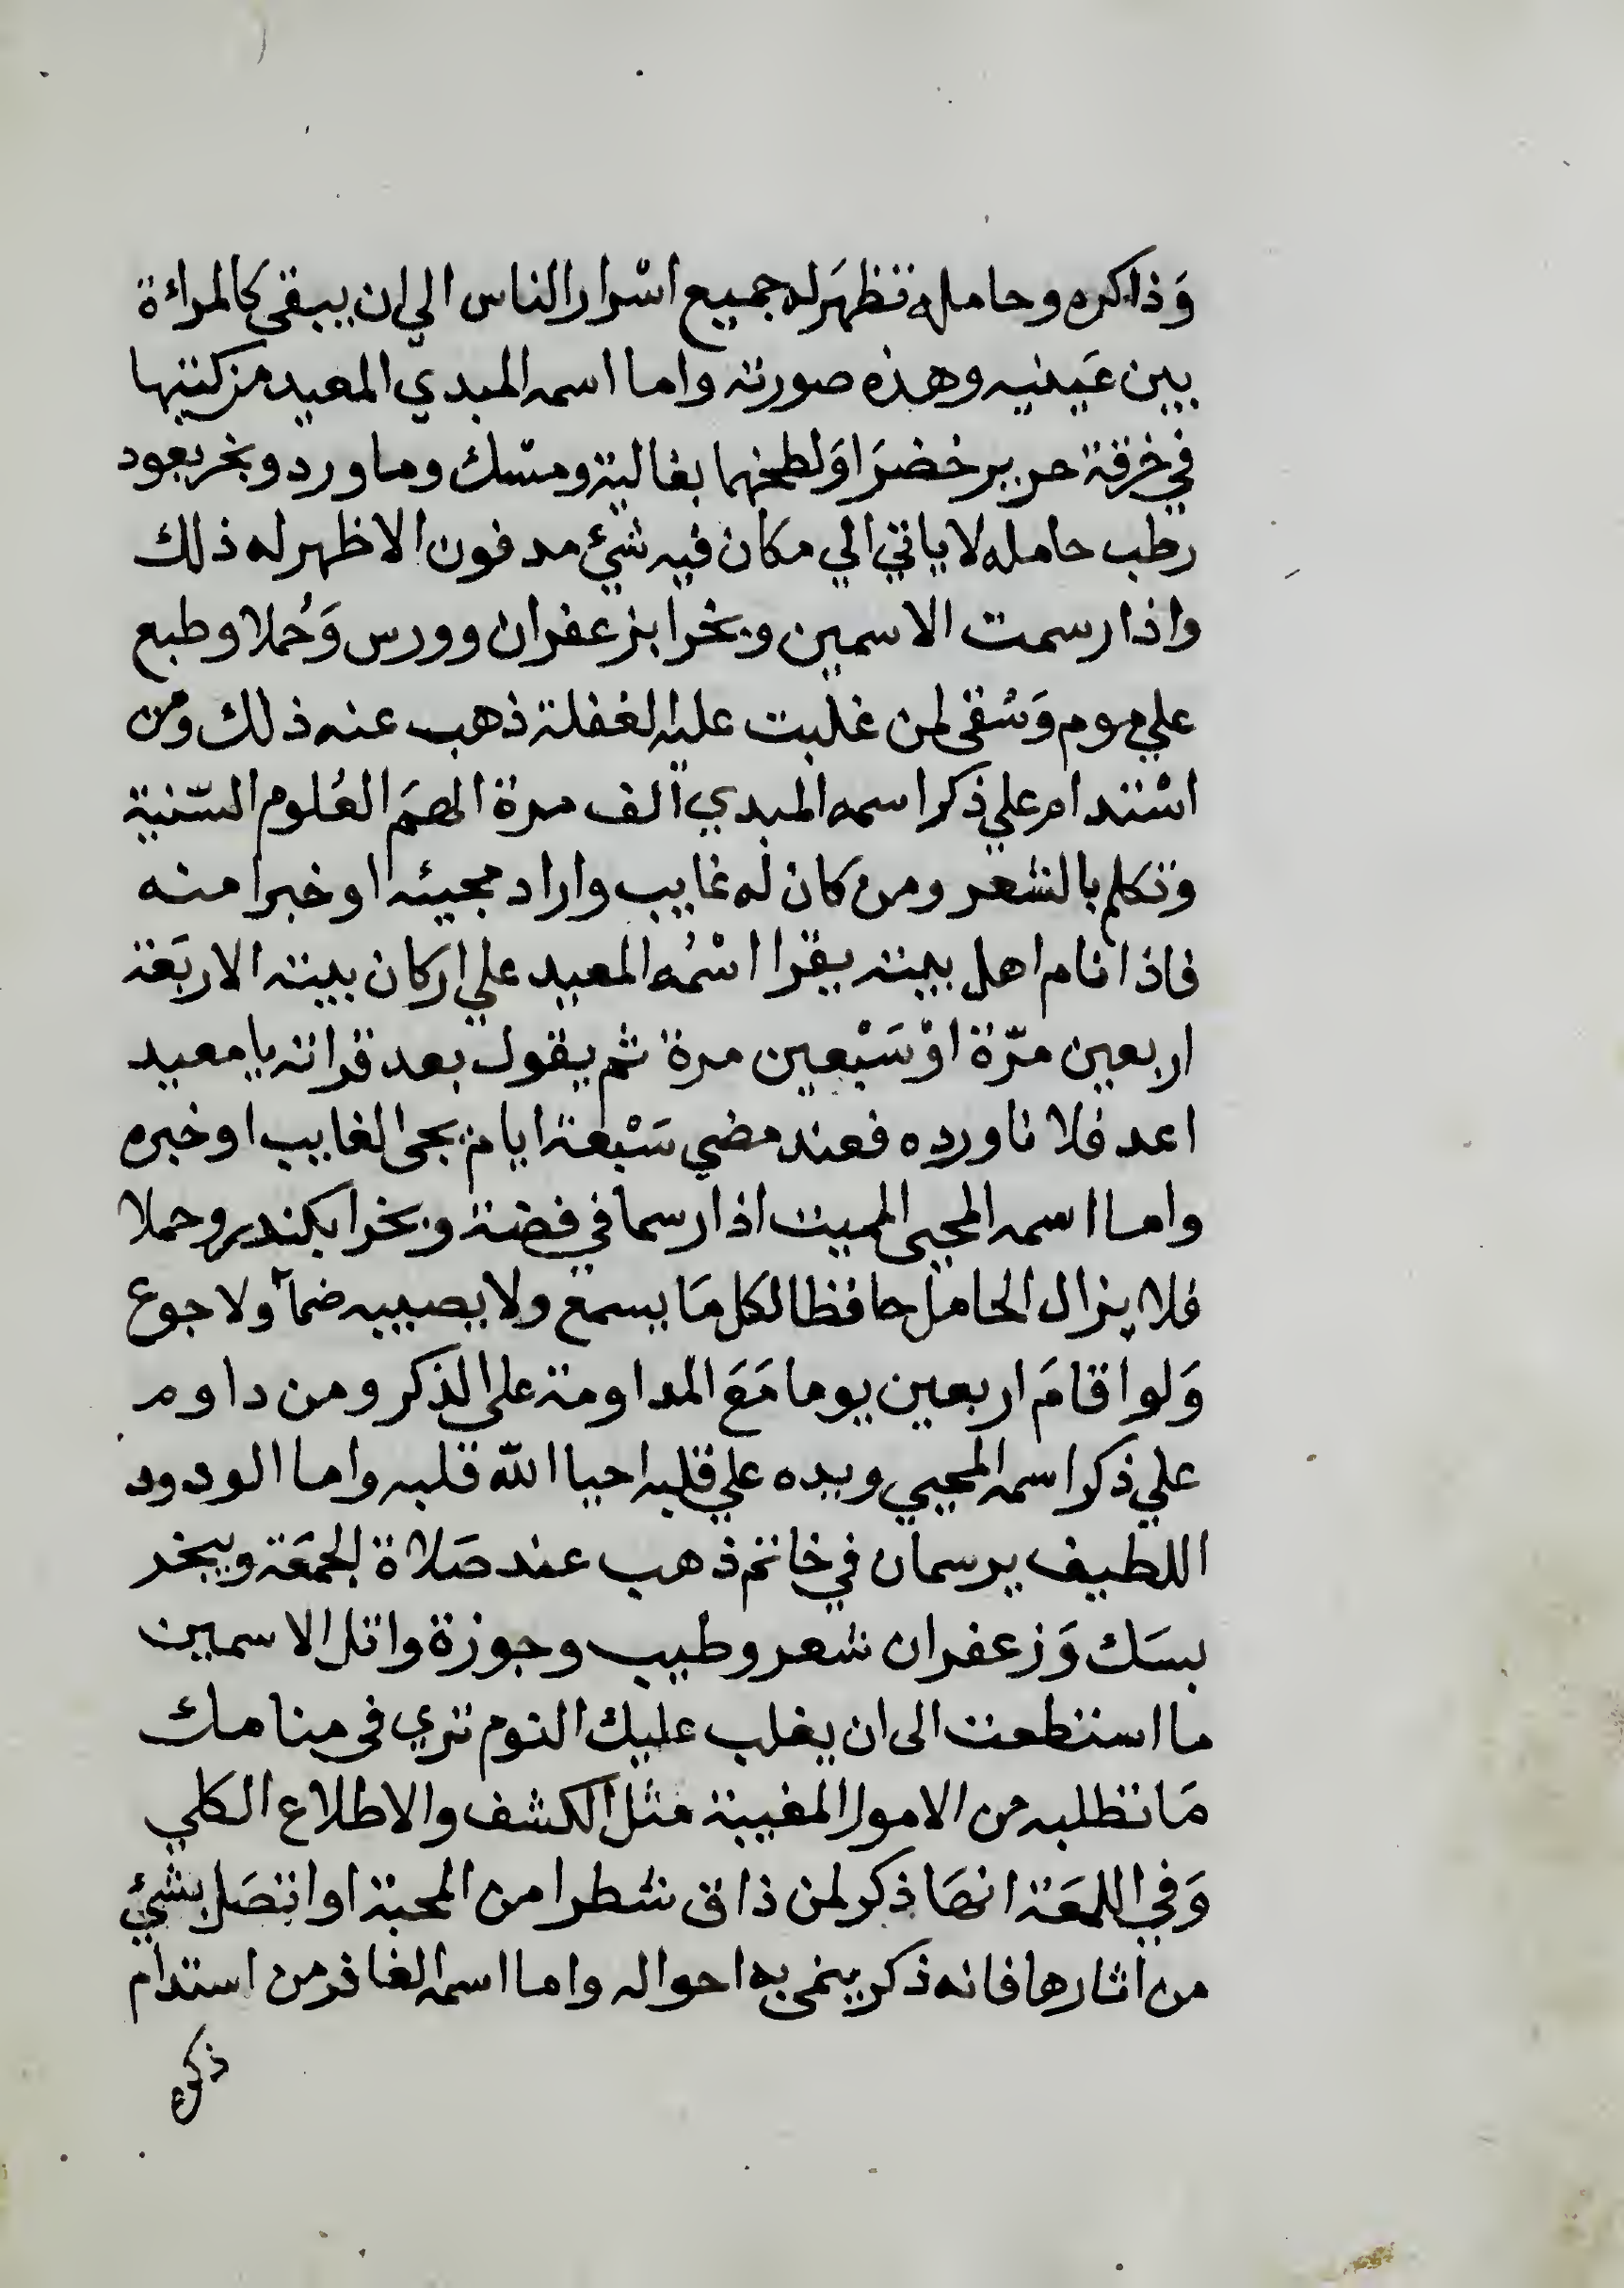 وَذاكره وحامله تظهَر له جميع اسْرار الناس الي ان يبقى كالمراءة
بين عَينيه وهذه صورته واما اسمه المبدي المعيد من كتبها
في خرقة حرير خضرَا وَلطخهما بغالية ومسْك وماورد وبخر بعود
رطب حامله لا ياتي الي مكان فيه شئ مدفون الا ظهر له ذلك
واذا رسمت الاسمين وبخرا بزعفران وورس وَحُملا وطبع
علي موم وَسُقى لمن غلبت عليه الغفلة ذهب عنه ذلك ومن
اسْتدام علي ذكر اسمه المبدي الف مرة الهمَ العُلوم السّنية
وتكلم بالشعر ومن كان له غايب واراد مجيئه او خبرا منه
فاذا نام اهل بيته يقرا اسْمُه المعيد علي اركان بيته الاربَعة
اربعين مرّة اوْ سَبْعين مرة ثم يقول بعد قراته يا معيد
اعد فلانا ورده فعند مضي سَبْعة ايام يجى الغايب او خبره
واما اسمه المحيى المميت اذا رسما في فضة وبخرا بكندر وحملا
فلا يزال الحامل حافظا لكل مَا يسمع ولا يصيبه ضمآ ولا جوع
وَلو اقامَ اربعين يوما مَعَ المداومة على الذكر ومن داوم
علي ذكر اسمه المحيي ويده علي قلبه احيا الله قلبه واما الودود
اللطيف يرسمان في خاتم ذهب عند صَلاة الجمعَة ويبخر
بسَك وَزعفران شعر وطيب وجوزة واتل الاسمين
ما استطعت الى ان يغلب عليك النوم تري فى منامك
مَا تطلبه من الامور المغيبة مثل الكشف والاطلاع الكلي
وَفي اللمعَة انهَا ذكر لمن ذاق شطرا من المحبة او اتصَل بشئ
من اثارها فانه ذكر ينمى به احواله واما اسمه الغافر من استدام
ذكره